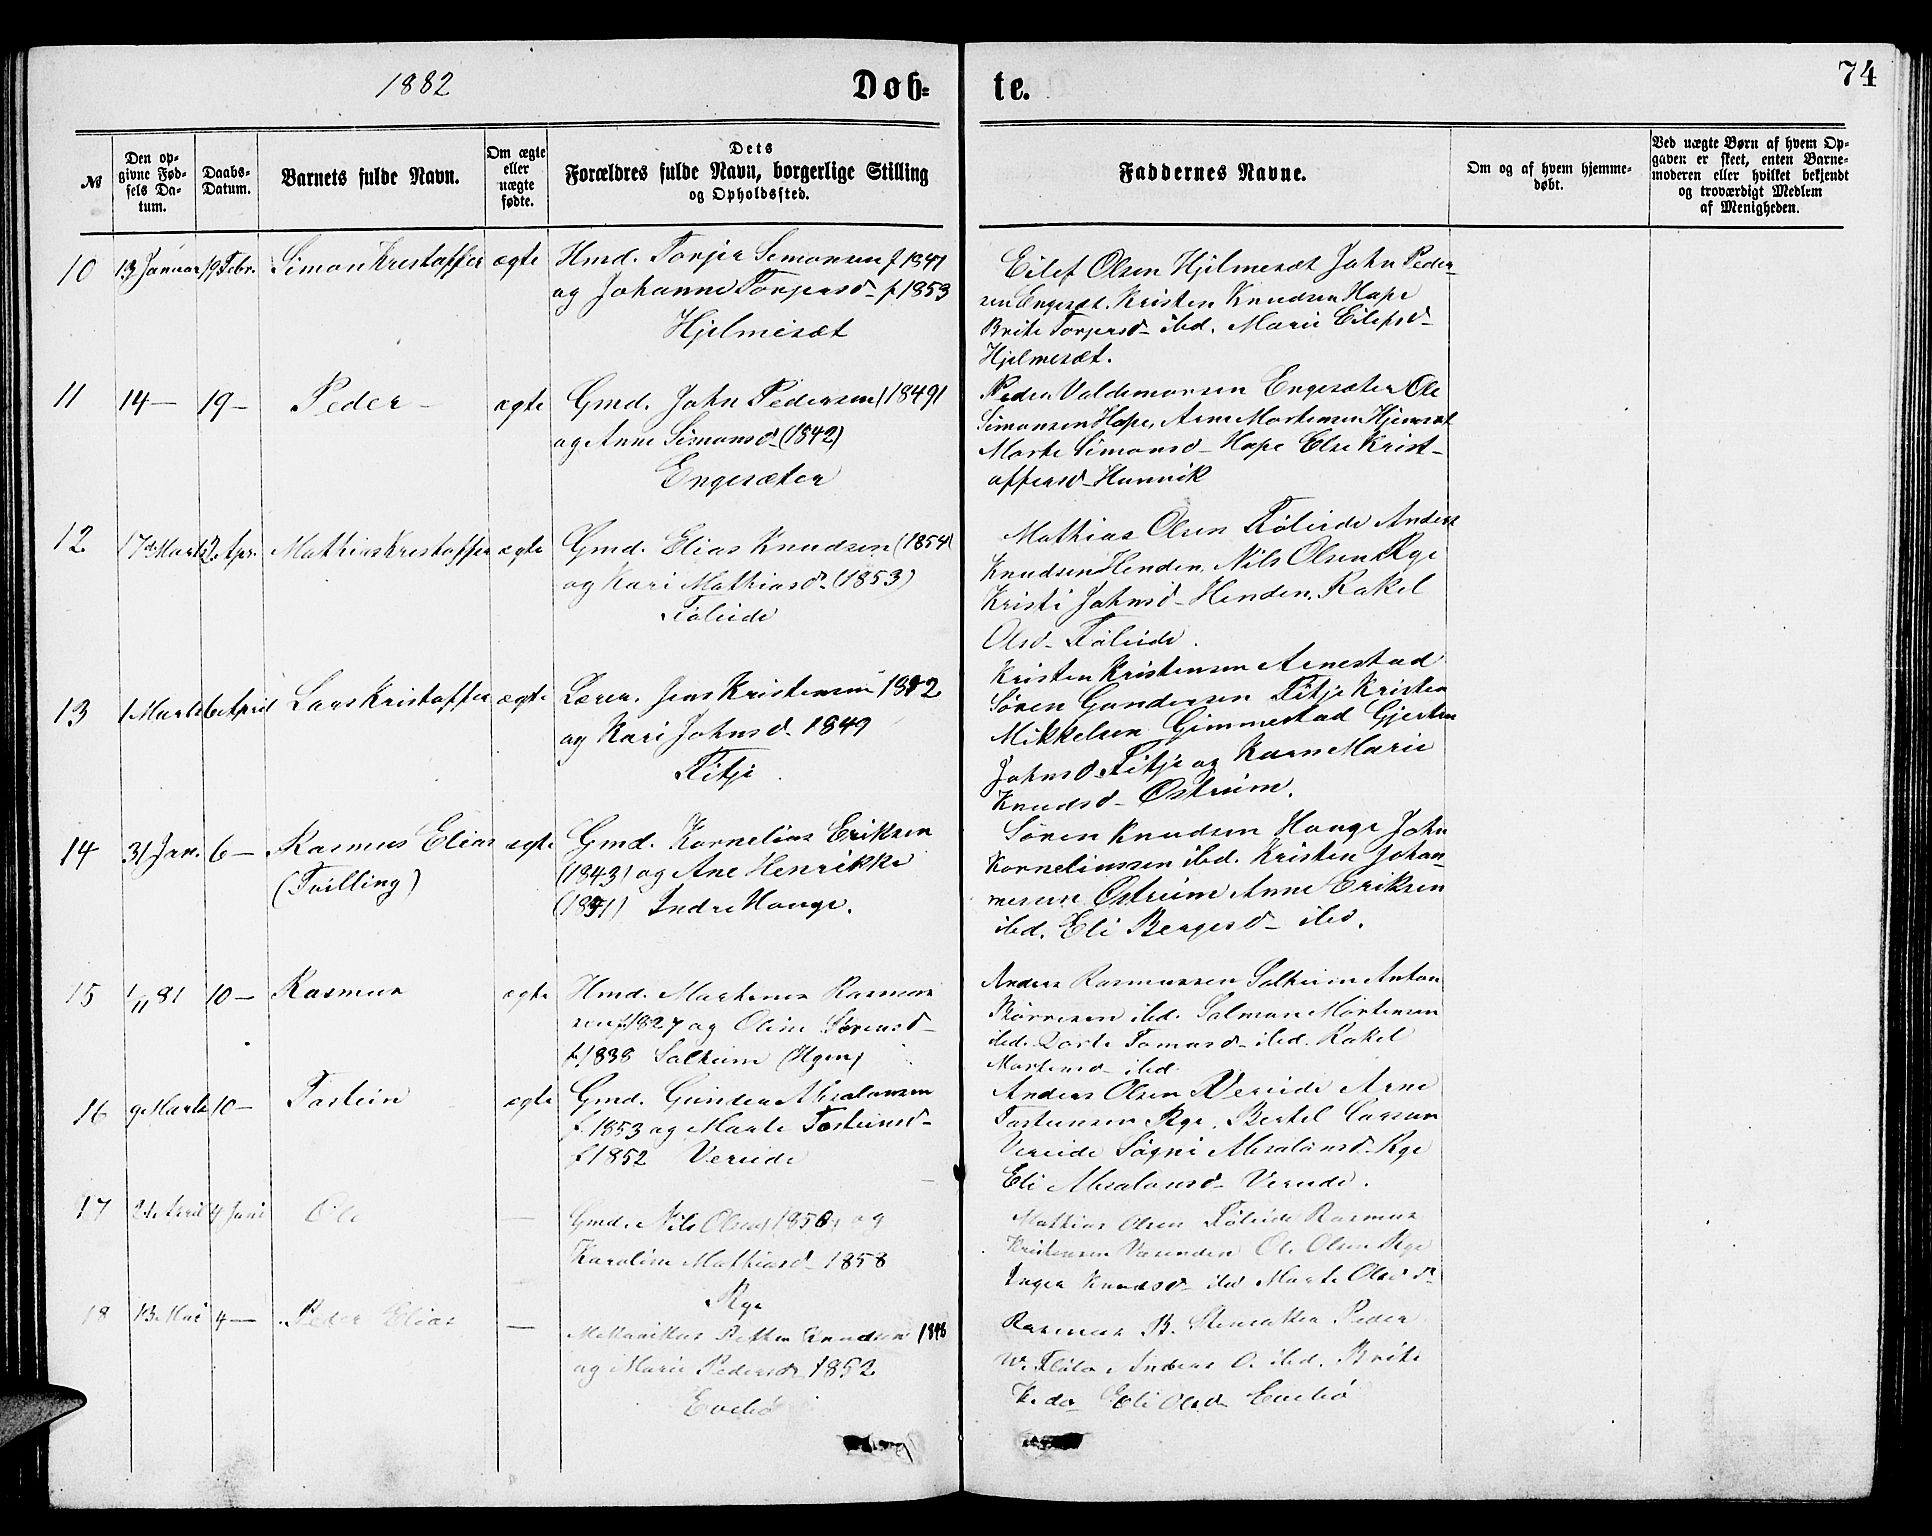 1882
Døb-
te.
74
№
Den op-
givne Fød-
sels Da-
tum.
Daabs-
Datum.
Barnets fulde Navn.
Om ægte
eller
uægte
fødte.
Dets
Forældres fulde Navn, borgerlige Stilling
og Opholdssted.
Faddernes Navne.
Om og af hvem hjemme-
døbt.
Ved uægte Børn af hvem Op-
gaven er skeet, enten Barne-
moderen eller hvilket bekjendt
og troværdigt Medlem
af Menigheden.
10 13 Januar 19 Febr. Simon Kristoffer ægte Hmd. Torjer Simonsen f 1847
og Johanne Torjersd- f. 1853
Hjelmesæt
Eilef Olsen Hjelmesæt John Peder-
sen Engesæt. Kristen Knudsen Hope
Brite Torjersd- ibd. Marie Eilefsd-
Hjelmesæt.
11 14 — 19 — Peder — ægte Gmd. John Pedersen (1849)
og Anne Simonsd- (1842)
Engesæter
Peder Valdemarsen Engesæter Ole
Simonsen Hope, Arne Martensen Hjemsæt
Marte Simonsd- Hope Else Krist-
offersd- Hunvik
12. 17de Marts 2 Apr. Mathias Kristoffer ægte Gmd. Elias Knudsen (1854)
og Kari Mathiasd- (1853)
Føleide
Mathias Olsen Føleide Anders
Knudsen Henden, Nils Olsen Ryge
Kristi Johnsd- Henden. Rakel
Olsd- Føleide.
13 1 Marts 6 April Lars Kristoffer ægte Lærer. Jens Kristensen 1842
og Kari Johnsd- 1849
Fitje
Kristen Kristensen Arnestad
Søren Gundersen Fitje Kristen
Mikkelsen Gimmestad Gjerten
Johnsd- Fitje og Karn Marie
Knudsd- Østrium.
14 31 Jan. 6 — Rasmus Elias ægte Gmd. Kornelius Eriksen
(Tvilling) (1843) og Ane Henrikke
Indre Hauge.
Søren Knudsen Hauge John
Korneliussen ibd. Kristen Johan-
nesen Østrium Anne Eriksen
ibd. Eli Bergesd- ibd.
15 1/11 81 10 — Rasmus ægte Hmd. Martenus Rasmus
sen f. 1827 og Oline Sørensd-
f. 1838 Solheim (Hyen)
Anders Rasmussen Solheim Anton
Børresen ibd. Salmon Mortensen
ibd. Dorte Tomasd- ibd. Rakel
Mortensd- ibd.
16 9 Marts 10 — Tostein ægte Gmd. Gunder Absalonsen
f. 1853 og Marte Tosteinsd-
f 1852 Vereide
Anders Olsen Vereide Arne
Tosteinsen Ryge. Bertel Larsen
Vereide Søgni Absalonsd- Ryge
Eli Absalonsd- Vereide.
17 21 April 4 Juni Ole — Gmd. Nils Olsen 1850 og
Karoline Mathiasd- 1858
Ryge
Mathias Olsen Føleide Rasmus
Kristensen Ole Olsen Ryge
Inger Knudsd- ibd Marte Olsd
18 13 Mai 4 — Peder Elias — Knudsen 1848
og Marie Pedersd- 1852
Evebø
Rasmus B. Peder
Fløtn Anders O. ibd. Brite
Eli Olsd- Evebø